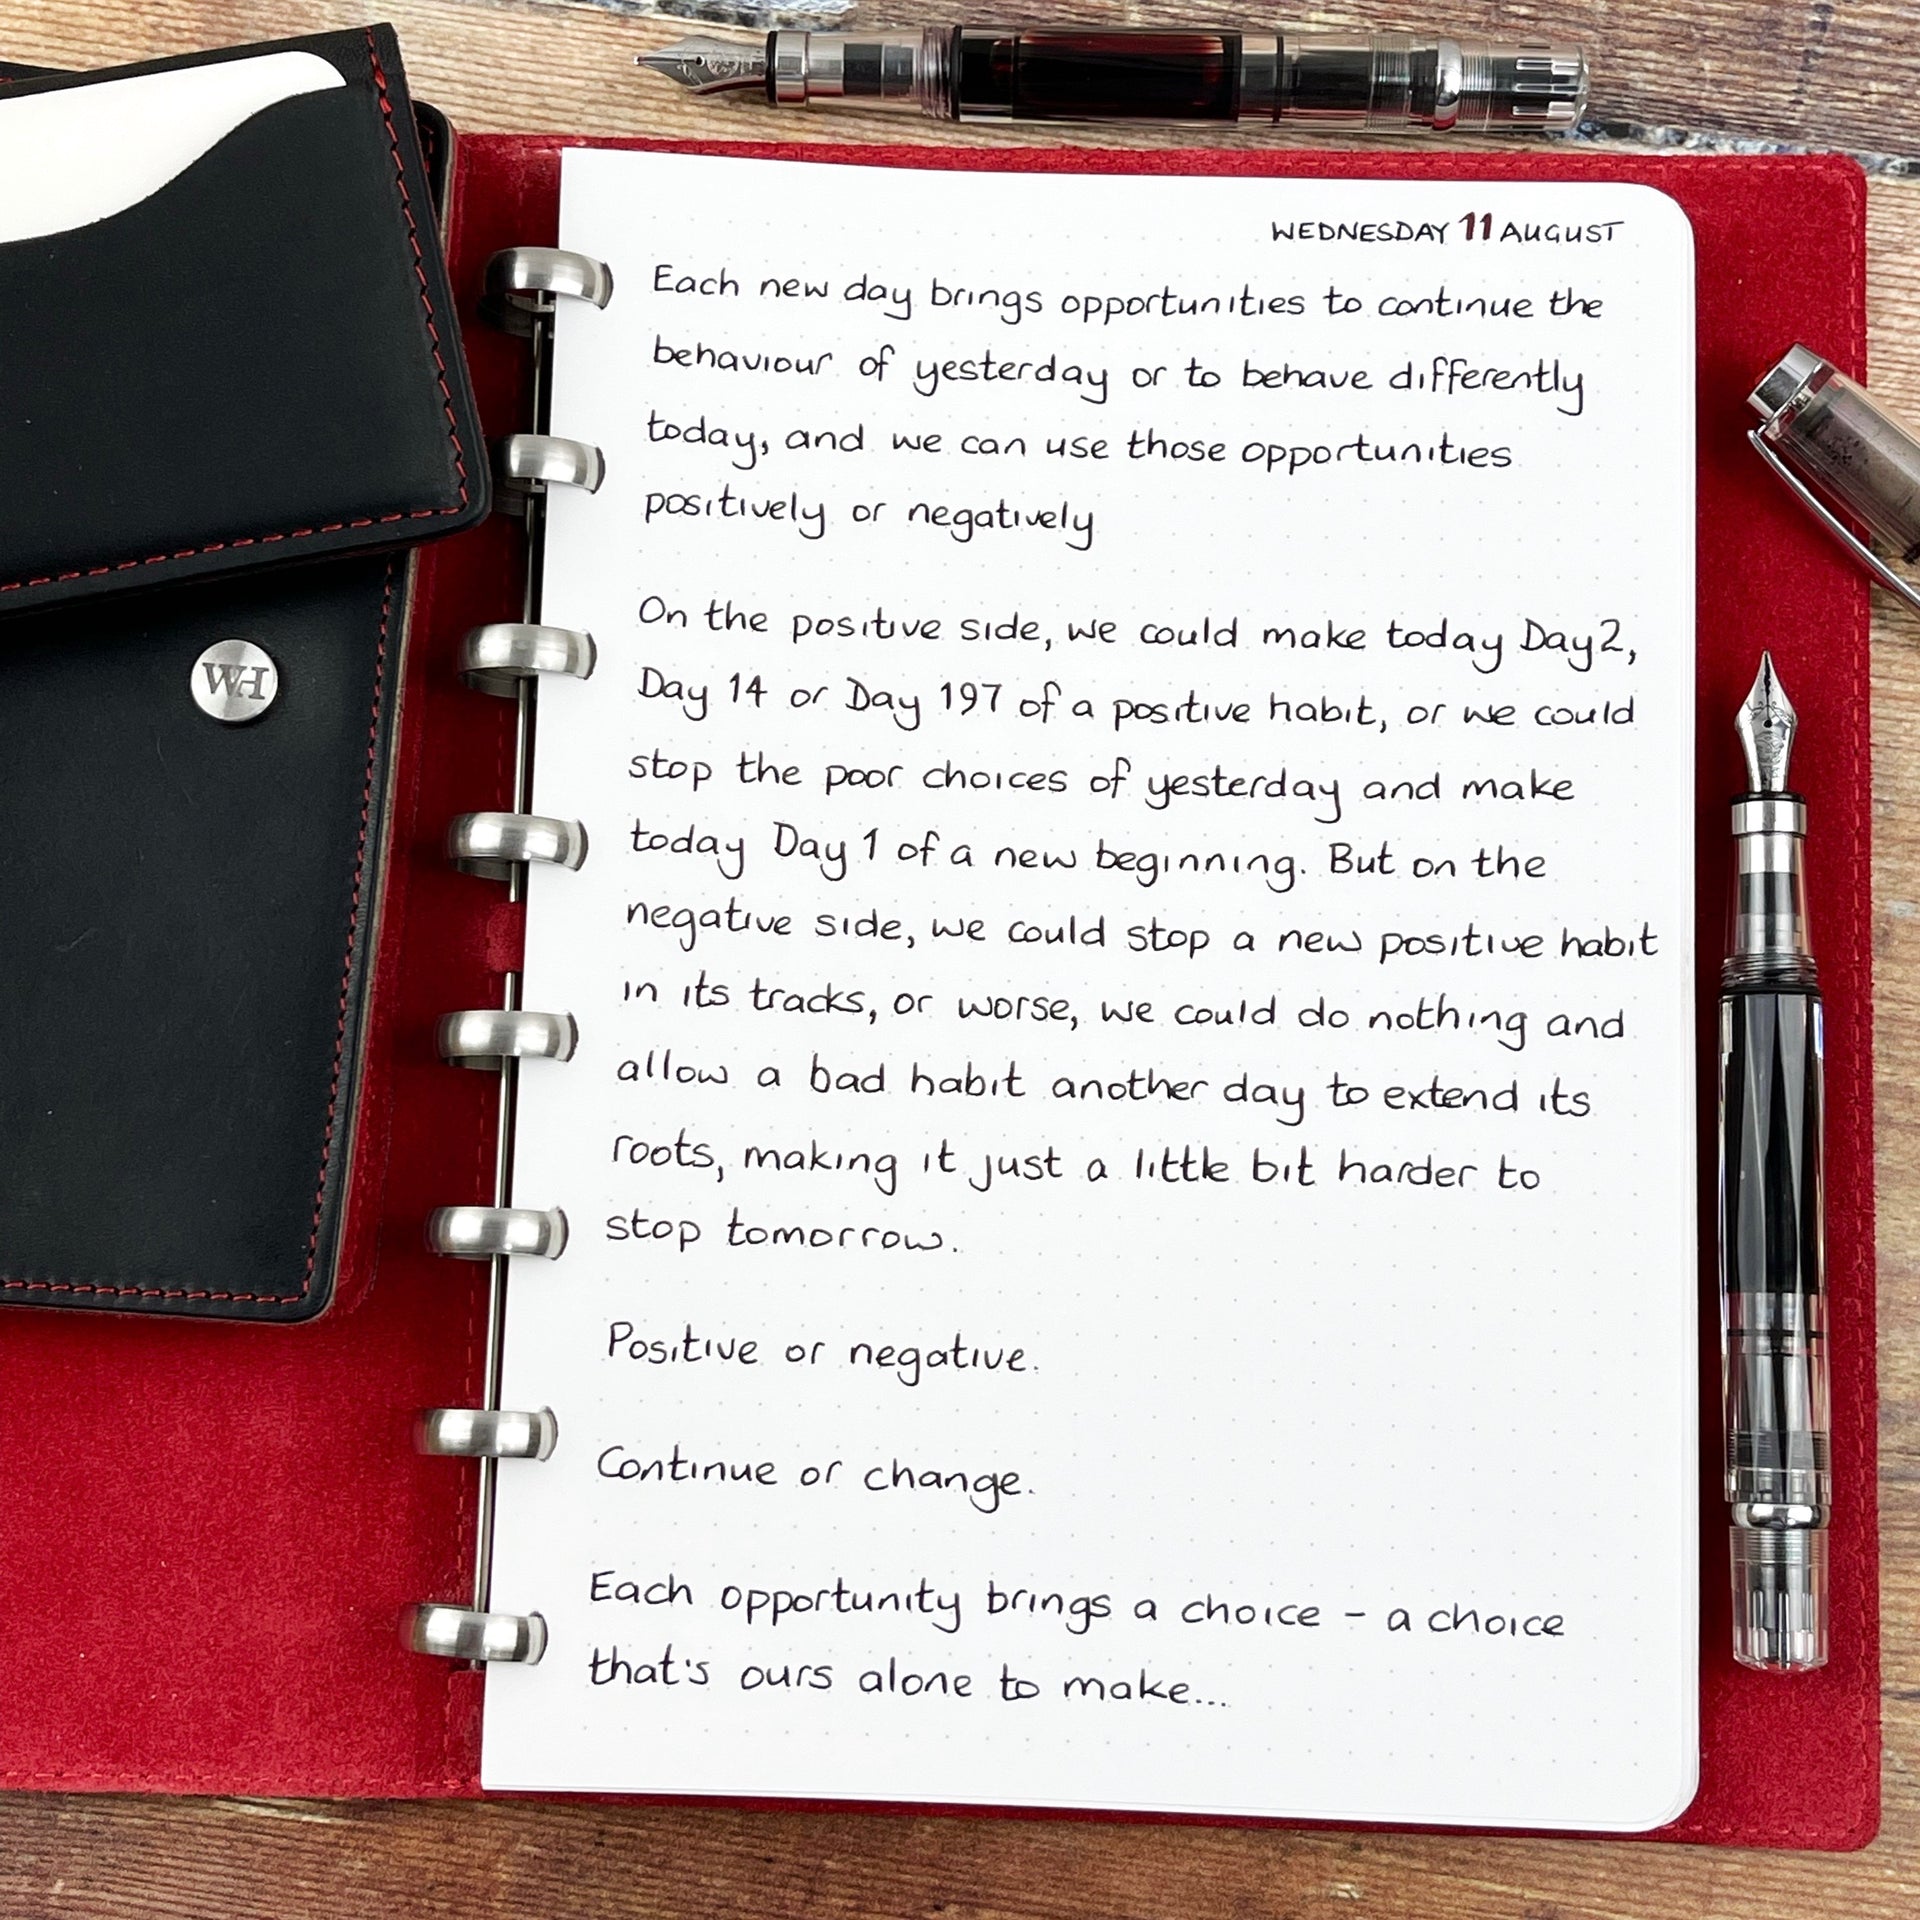 WEDNESDAY 11 AUGUST
Each new day brings opportunities to continue the
behaviour of yesterday or to behave differently
today, and we can use those opportunities
positively or negatively
On the positive side, we could make today Day 2,
Day 14 or Day 197 of a positive habit, or we could
stop the poor choices of yesterday and make
today Day 1 of a new beginning. But on the
negative side, we could stop a new positive habit
in its tracks, or worse, we could do nothing and
allow a bad habit another day to extend its
roots, making it just a little bit harder to
stop tomorrow.
Positive or negative.
Continue or change.
Each opportunity brings a choice – a choice
that's ours alone to make...
WH